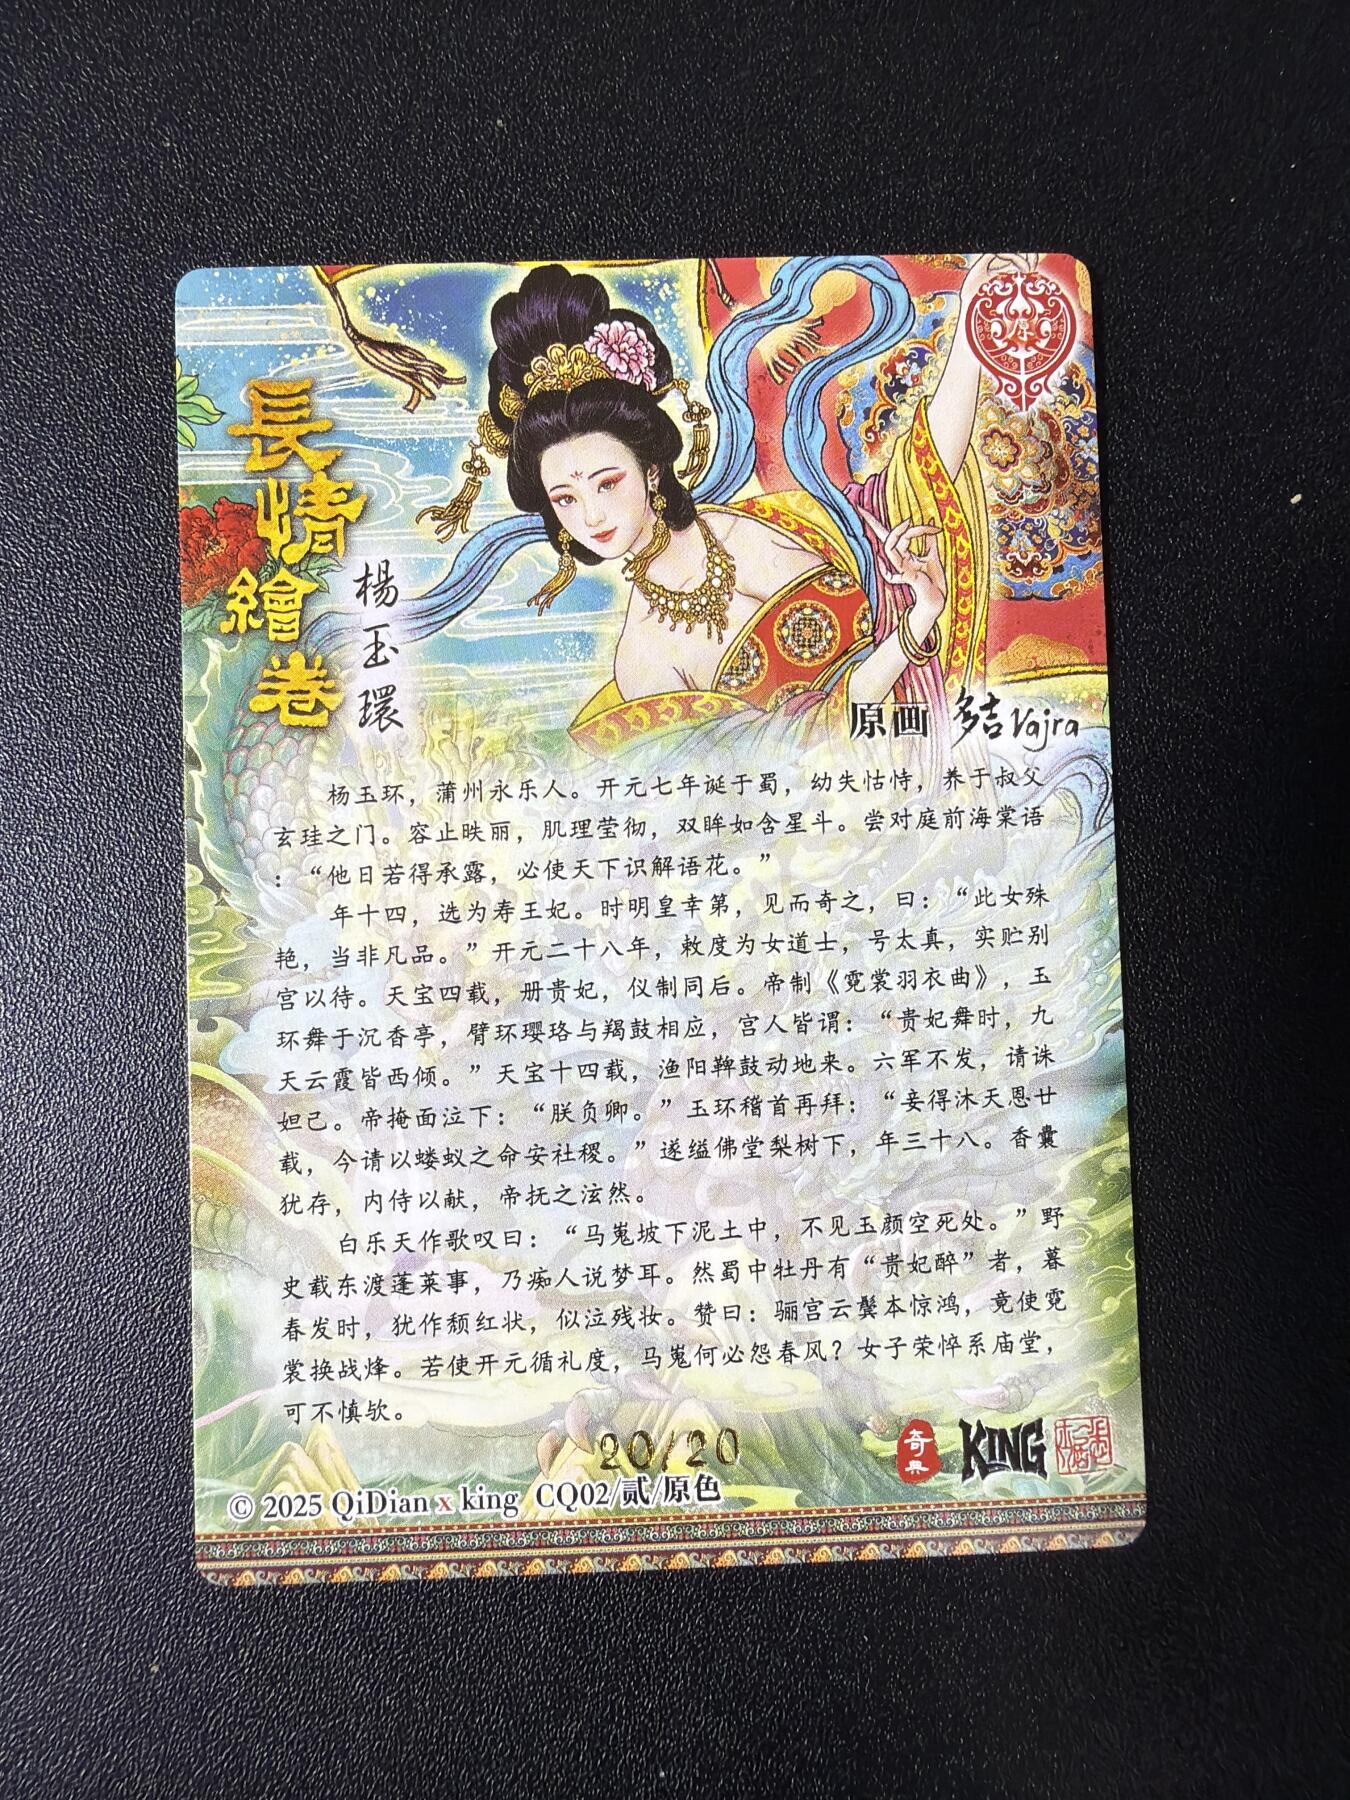 長情繪卷
楊玉環
原画 多吉Vajra
杨玉环，蒲州永乐人。开元七年诞于蜀，幼失怙恃，养于叔父
玄珪之门。容止昳丽，肌理莹彻，双眸如含星斗。尝对庭前海棠语
：“他日若得承露，必使天下识解语花。”
年十四，选为寿王妃。时明皇幸第，见而奇之，曰：“此女殊
艳，当非凡品。”开元二十八年，敕度为女道士，号太真，实贮别
宫以待。天宝四载，册贵妃，仪制同后。帝制《霓裳羽衣曲》，玉
环舞于沉香亭，臂环璎珞与羯鼓相应，宫人皆谓：“贵妃舞时，九
天云霞皆西倾。”天宝十四载，渔阳鞞鼓动地来。六军不发，请诛
妲己。帝掩面泣下：“朕负卿。”玉环稽首再拜：“妾得沐天恩廿
载，今请以蝼蚁之命安社稷。”遂缢佛堂梨树下，年三十八。香囊
犹存，内侍以献，帝抚之泫然。
白乐天作歌叹曰：“马嵬坡下泥土中，不见玉颜空死处。”野
史载东渡蓬莱事，乃痴人说梦耳。然蜀中牡丹有“贵妃醉”者，暮
春发时，犹作颓红状，似泣残妆。赞曰：骊宫云鬓本惊鸿，竟使霓
裳换战烽。若使开元循礼度，马嵬何必怨春风？女子荣悴系庙堂，
可不慎欤。
20/20
奇典 KING
© 2025 QiDian x king CQ02/贰/原色